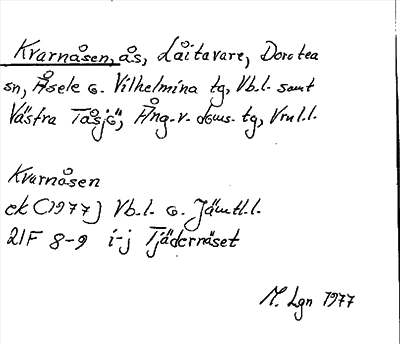 Kvarnåsen, ås, Låitavare, Dorotea
sn, Åsele o. Vilhelmina tg, Vb.l. samt
Västra Tåsjö, Ång.v. doms. tg, Vrnl.l.
Kvarnåsen
ek (1977) Vb.l. o. Jämtl.l.
21F 8-9 i-j Tjädernäset
M. Lgn 1977